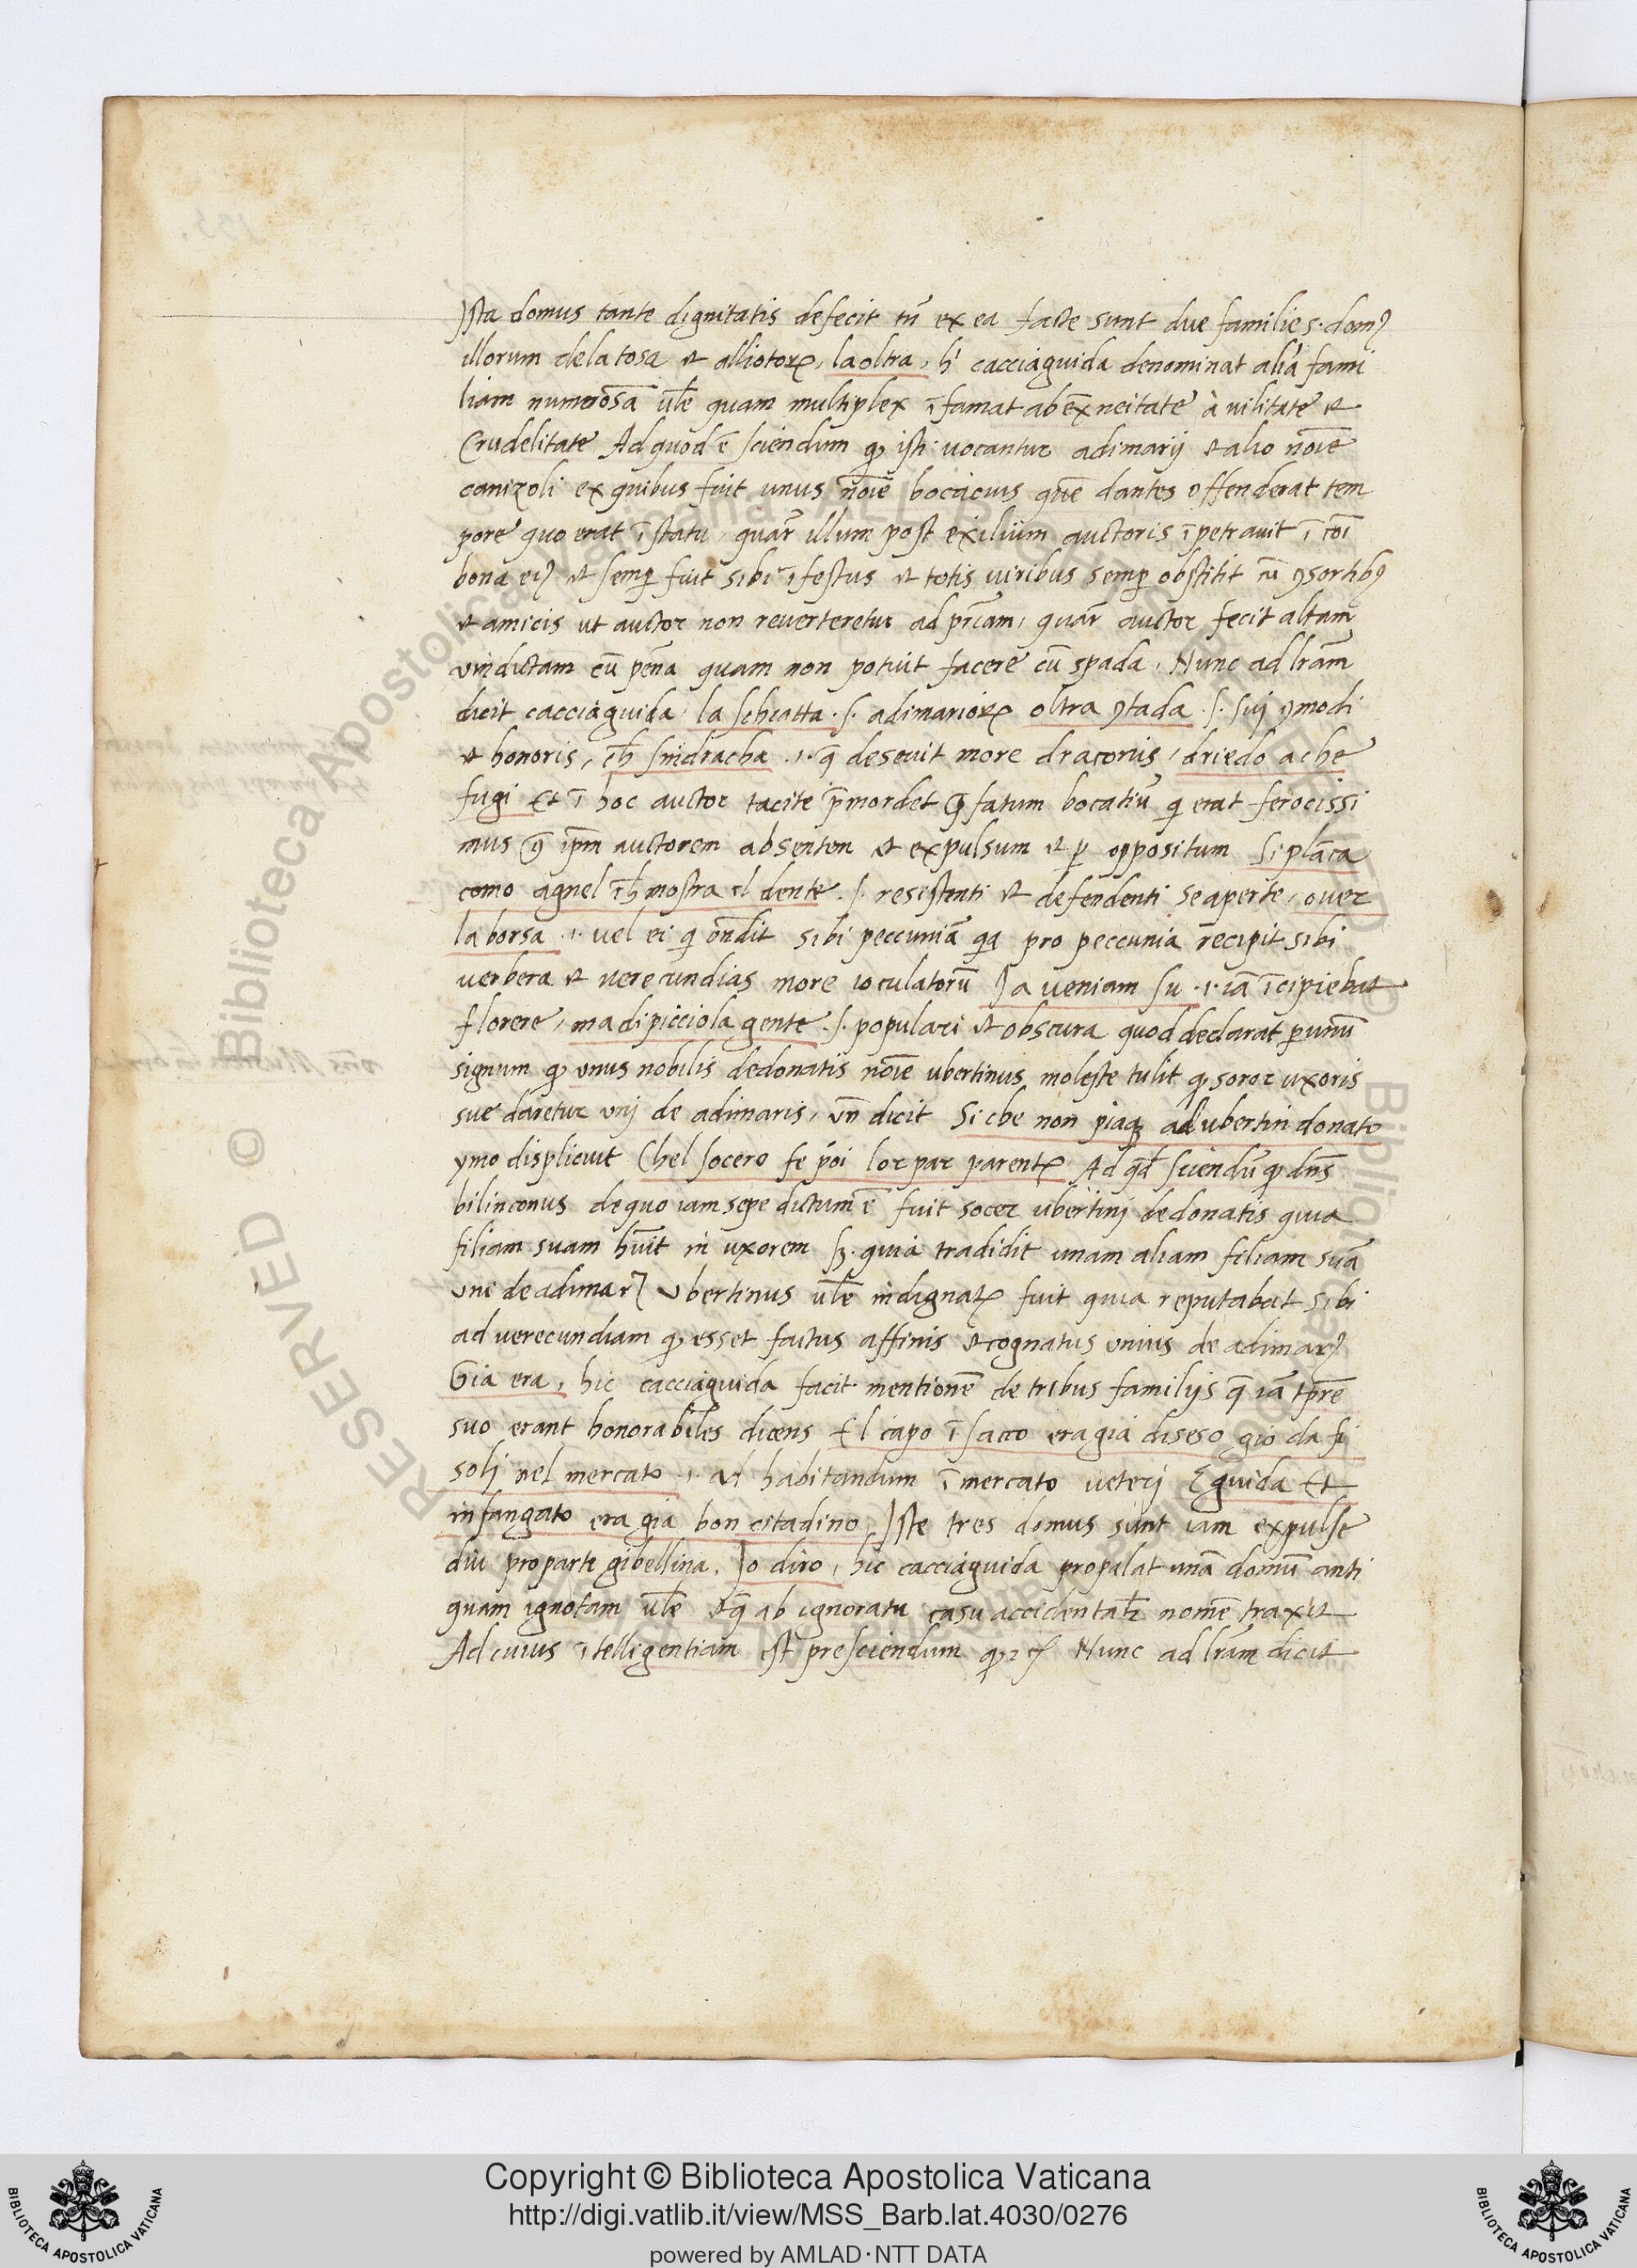 Ista domus tante dignitatis defecit tn̄ ex ea facte sunt due familie s. domꝰ
illorum dela tosa et alliotoꝝ, laoltra, h' cacciaguida denominat aliā fami
liam numerosā ūl̄e quam multiplex īfamat ab exn̄citate à vilitate et
Crudelitate Ad quod ē sciendum ꝙ isti vocantur adimarij et alio nōīe
canizoli ex quibus fuit unus nōīe bocacius quē dantes offenderat tem
pore quo erat ī statu, quār illum post exilium auctoris īpetravit ī cōī
bona eiꝰ et semꝑ fuit sibi īfestus et totis viribus semꝑ obstitit cū ꝯsortibꝰ
et amicis ut auctor non reverteretur ad pr̄iam, quār auctor fecit altam
vindictam cū pēna quam non potuit facere cū spada. Nunc ad lr̄am
dicit cacciaguida, la schiatta .s. adimarioꝝ oltra ꝯtada .s. sui ꝯmodi
et honoris, ch̄ sindracha .i. q̄ desevit more draconis, driedo a che
fugi Et ī hoc auctor tacite p̄mordet p̄fatum bocatiū qi erat ferocissi
mus ꝯ̄ ip̄m auctorem absentem et expulsum et ꝑ oppositum si plāca
como agnel ch̄ mostra el dente .s. resistenti et defendenti se aperte, over
la borsa .i. vel ei qi ōn̄dit sibi peccuniā qa pro peccunia recipit sibi
verbera et verecundias more ioculatorū Ja veniam su .i. iā īcipiebat
florere, ma di picciola gente .s. populari et obscura quod declarat ꝑ unū
signum ꝙ unus nobilis dedonatis nōīe ubertinus moleste tulit ꝙ soror uxoris
sue daretur unj de adimaris, un̄ dicit Si che non piaqꝫ ad ubertin donato
ymo displicuit Chel socero fe pōi lor par parentꝝ Ad qd̄ sciendū ꝙ dn̄s
bilinconus de quo iam sepe dictum ē fuit socer ubertinj dedonatis quia
filiam suam hūit in uxorem sꝫ quia tradidit unam aliam filiam suā
uni de adimarꝫ Ubertinus ūl̄e indignatꝰ fuit quia reputabat sibi
ad verecundiam ꝙ esset factus affinis et cognatus unius de adimarꝫ
Gia era, hic cacciaguida facit mentionē de tribus familijs q̄ iā tp̄re
suo erant honorabiles dicens El capo īsacco era gia diseso gio da fi
soli nel mercato .i. ad habitandum ī mercato veterj E guida Et
infangato era gia bon citadino Iste tres domus sunt iam expulse
diu pro parte gibellina. Io diro, hic cacciaguida propalat unā domū anti
quam ignotam ūl̄e et q̄ ab ignoratu casu accidentalꝫ nomē traxit
Ad cuius ītelligentiam est presciendum ꝙ ⁊c̄ Nunc ad lr̄am dicit
Copyright © Biblioteca Apostolica Vaticana
http://digi.vatlib.it/view/MSS_Barb.lat.4030/0276
powered by AMLAD·NTT DATA